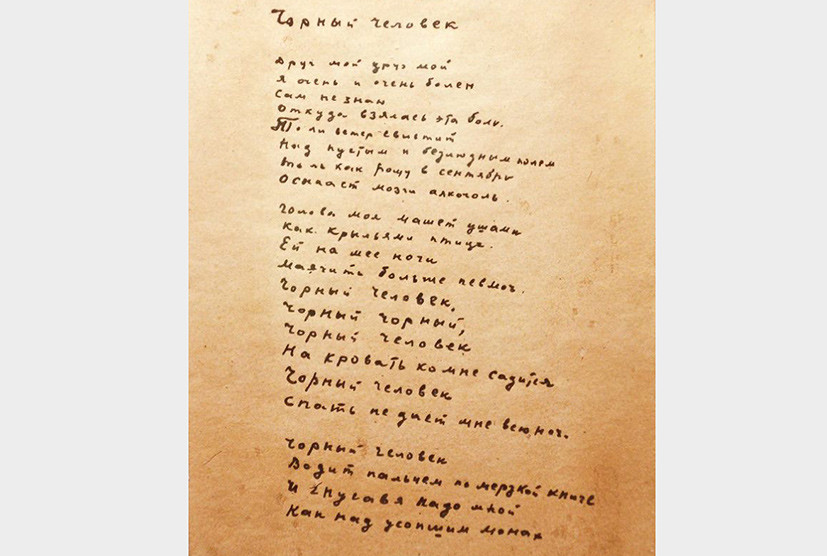 Чорный человек
Друг мой друг мой
Я очень и очень болен
Сам не знаю
Откуда взялась эта боль.
То ли ветер свистит
Над пустым и безлюдным полем
То ль как рощу в сентябрь
Осыпает мозги алкоголь.
Голова моя машет ушами
Как крыльями птица.
Ей на шее ночи
Маячить больше невмоч.
Чорный человек,
Чорный чорный,
Чорный человек
На кровать ко мне садится
Чорный человек
Спать не дает мне всю ноч.
Чорный человек
Водит пальцем по мерзкой книге
И гнусавя надо мной
Как над усопшим монах